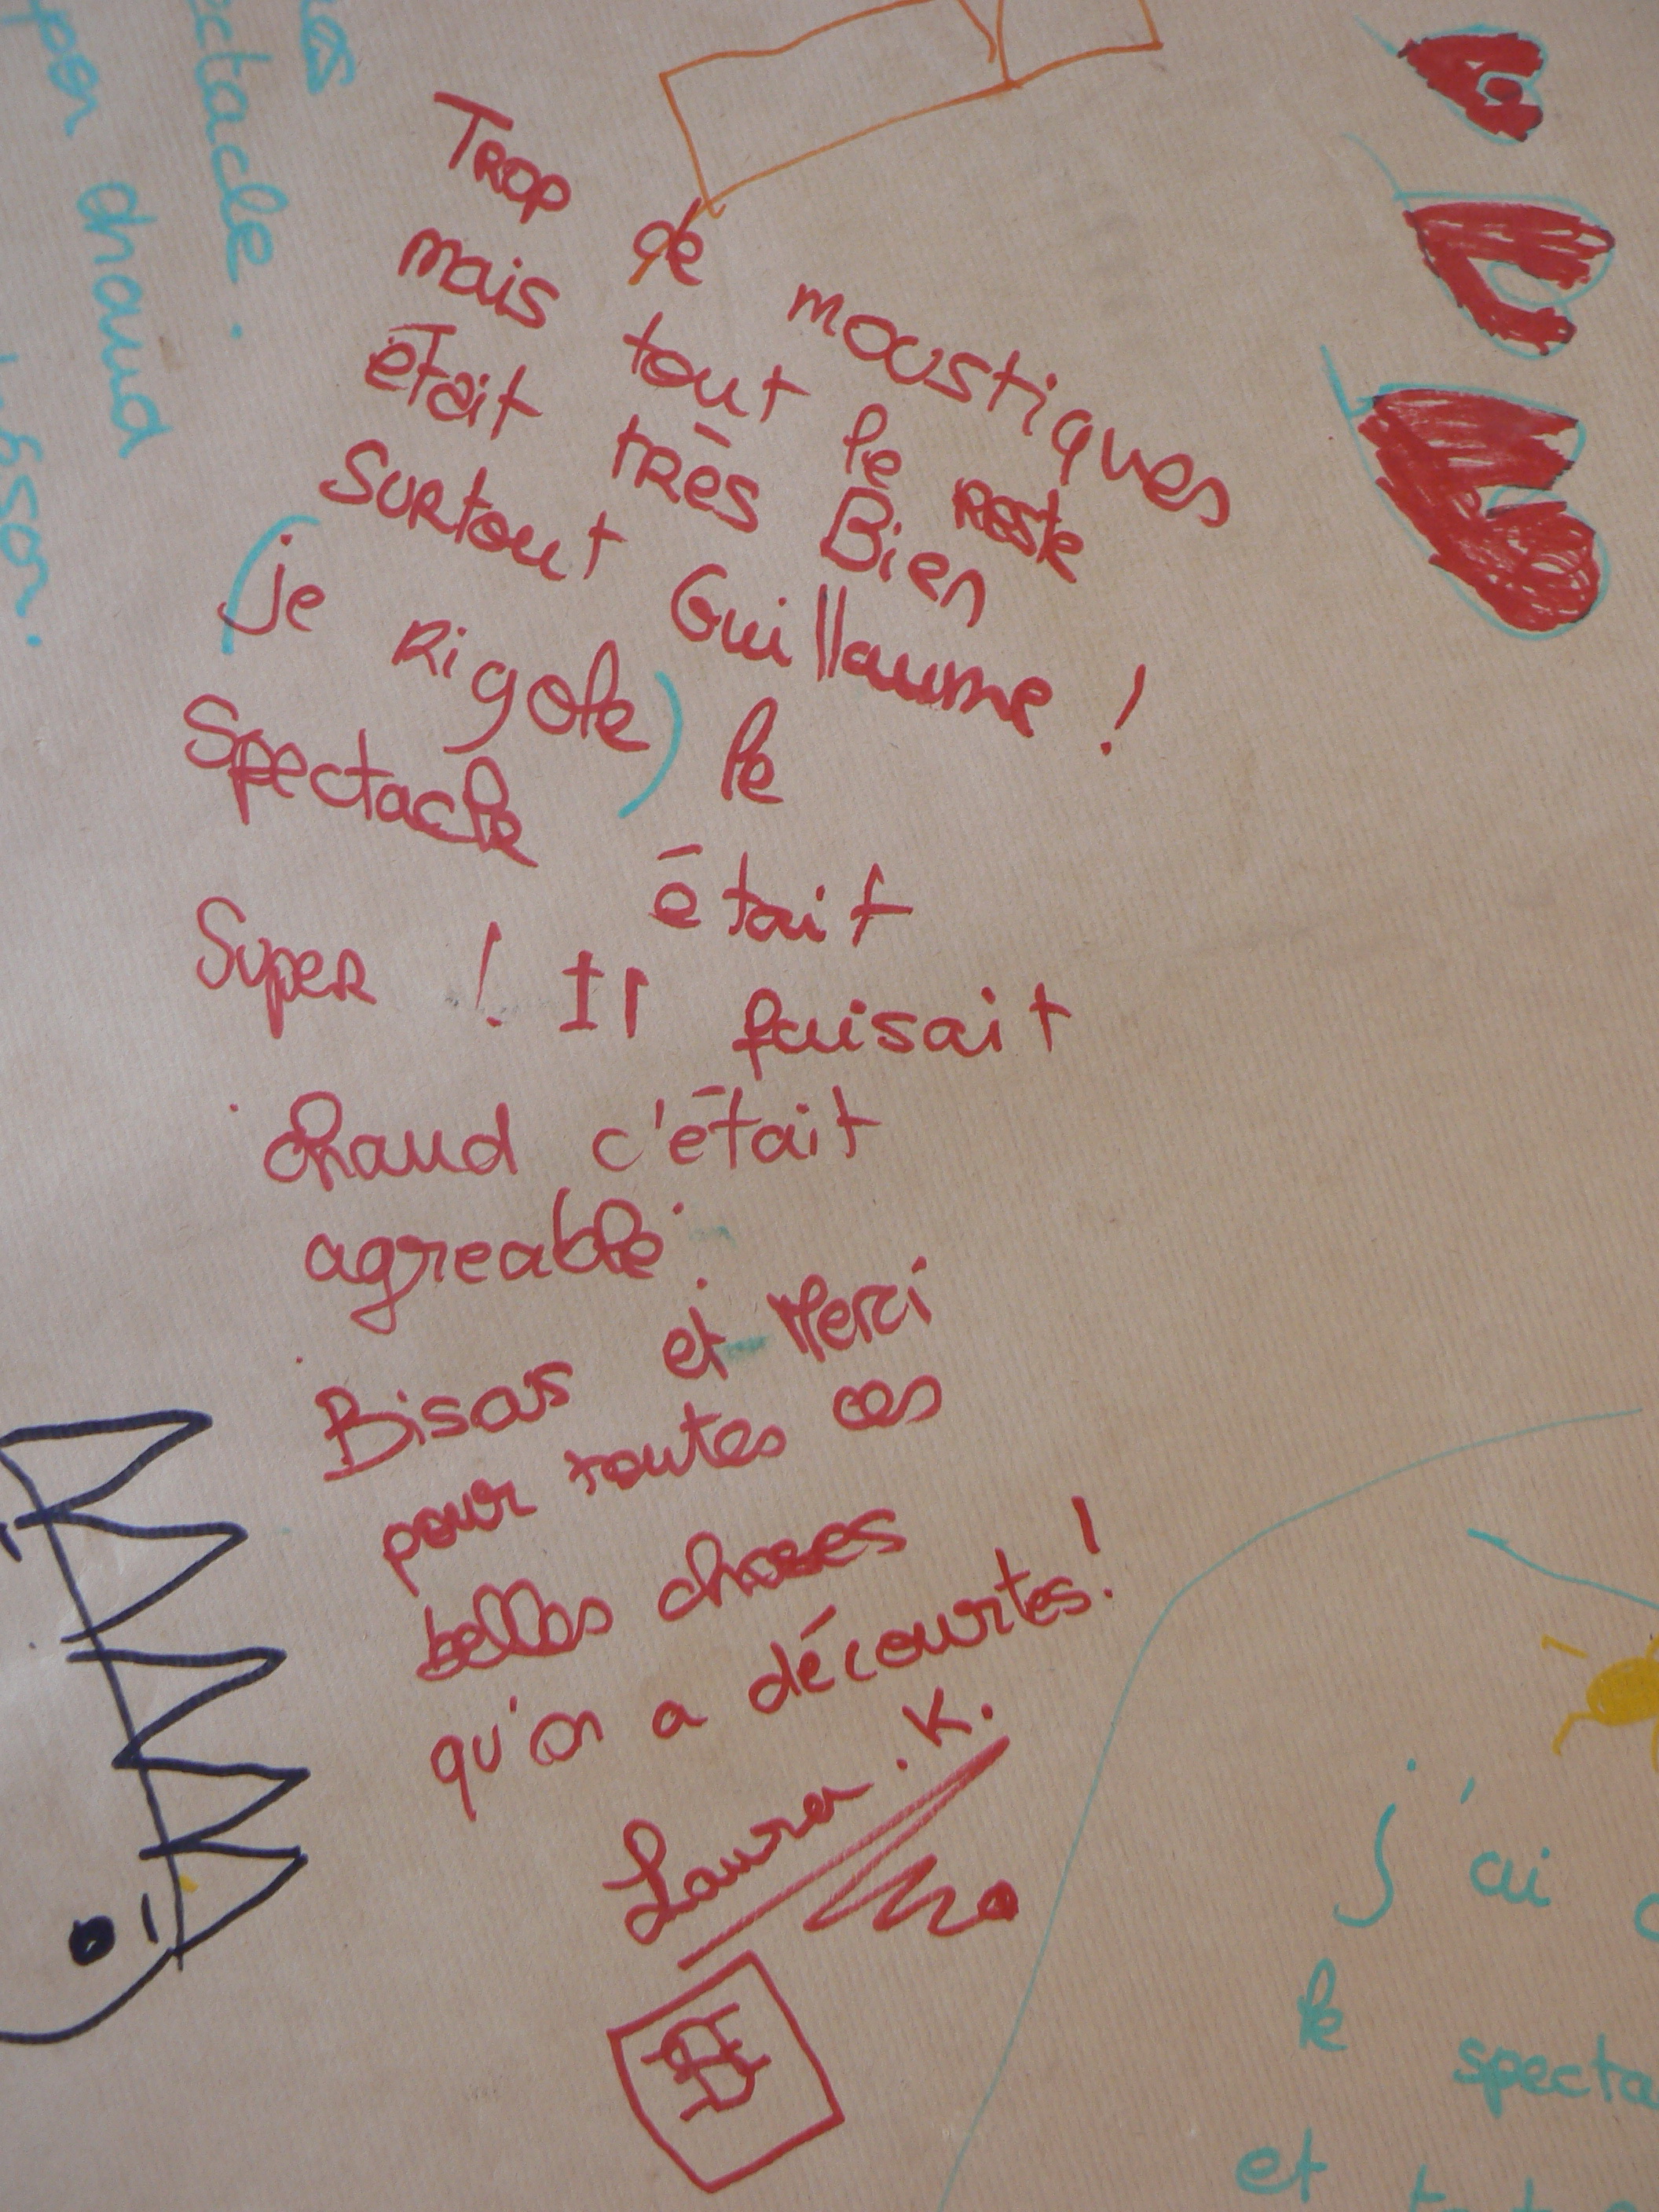 Trop de moustiques
mais tout le reste
était très Bien
surtout Guillaume !
(je rigole) le
spectacle
était
super ! Il faisait
chaud c'était
agreable.
Bisous et Merci
pour toutes ces
belles choses
qu'on a découvrtes !
Laura. K.
ectacle.
chaud
j'ai
le specta
et